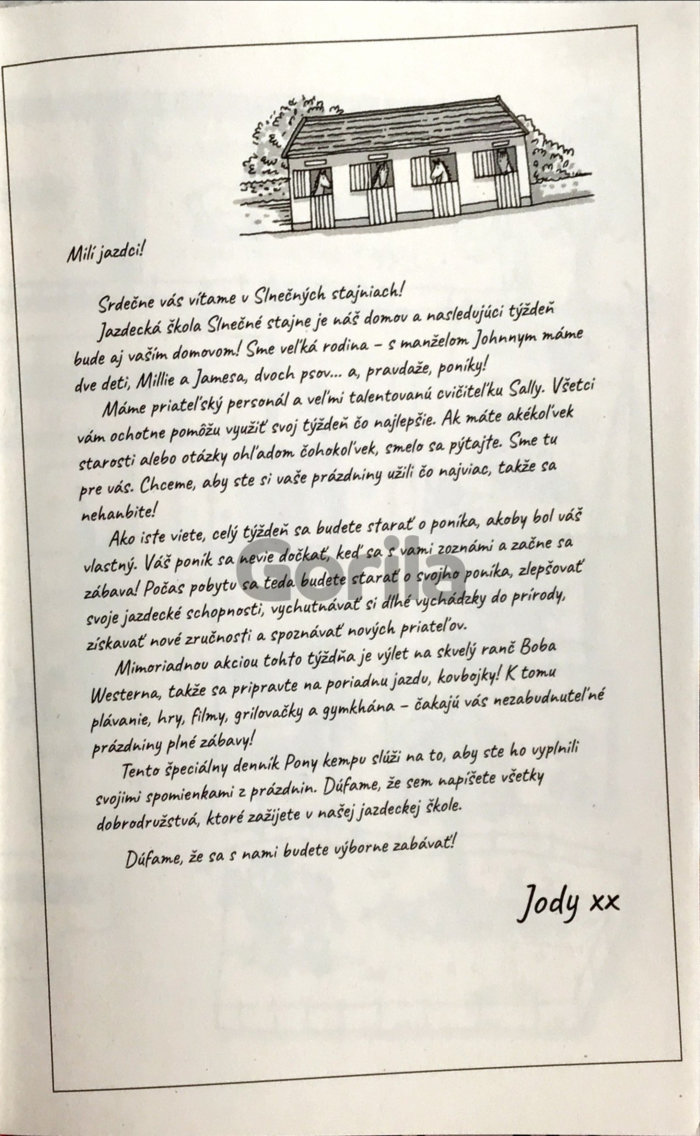 Milí jazdci!
Srdečne vás vítame v Slnečných stajniach!
Jazdecká škola Slnečné stajne je náš domov a nasledujúci týždeň
bude aj vaším domovom! Sme veľká rodina – s manželom Johnnym máme
dve deti, Millie a Jamesa, dvoch psov... a, pravdaže, poníky!
Máme priateľský personál a veľmi talentovanú cvičiteľku Sally. Všetci
vám ochotne pomôžu využiť svoj týždeň čo najlepšie. Ak máte akékoľvek
starosti alebo otázky ohľadom čohokoľvek, smelo sa pýtajte. Sme tu
pre vás. Chceme, aby ste si vaše prázdniny užili čo najviac, takže sa
nehanbite!
Ako iste viete, celý týždeň sa budete starať o poníka, akoby bol váš
vlastný. Váš poník sa nevie dočkať, keď sa s vami zoznámi a začne sa
zábava! Počas pobytu sa teda budete starať o svojho poníka, zlepšovať
svoje jazdecké schopnosti, vychutnávať si dlhé vychádzky do prírody,
získavať nové zručnosti a spoznávať nových priateľov.
Mimoriadnou akciou tohto týždňa je výlet na skvelý ranč Boba
Westerna, takže sa pripravte na poriadnu jazdu, kovbojky! K tomu
plávanie, hry, filmy, grilovačky a gymkhána – čakajú vás nezabudnuteľné
prázdniny plné zábavy!
Tento špeciálny denník Pony kempu slúži na to, aby ste ho vyplnili
svojimi spomienkami z prázdnin. Dúfame, že sem napíšete všetky
dobrodružstvá, ktoré zažijete v našej jazdeckej škole.
Dúfame, že sa s nami budete výborne zabávať!
Jody xx
Gorila